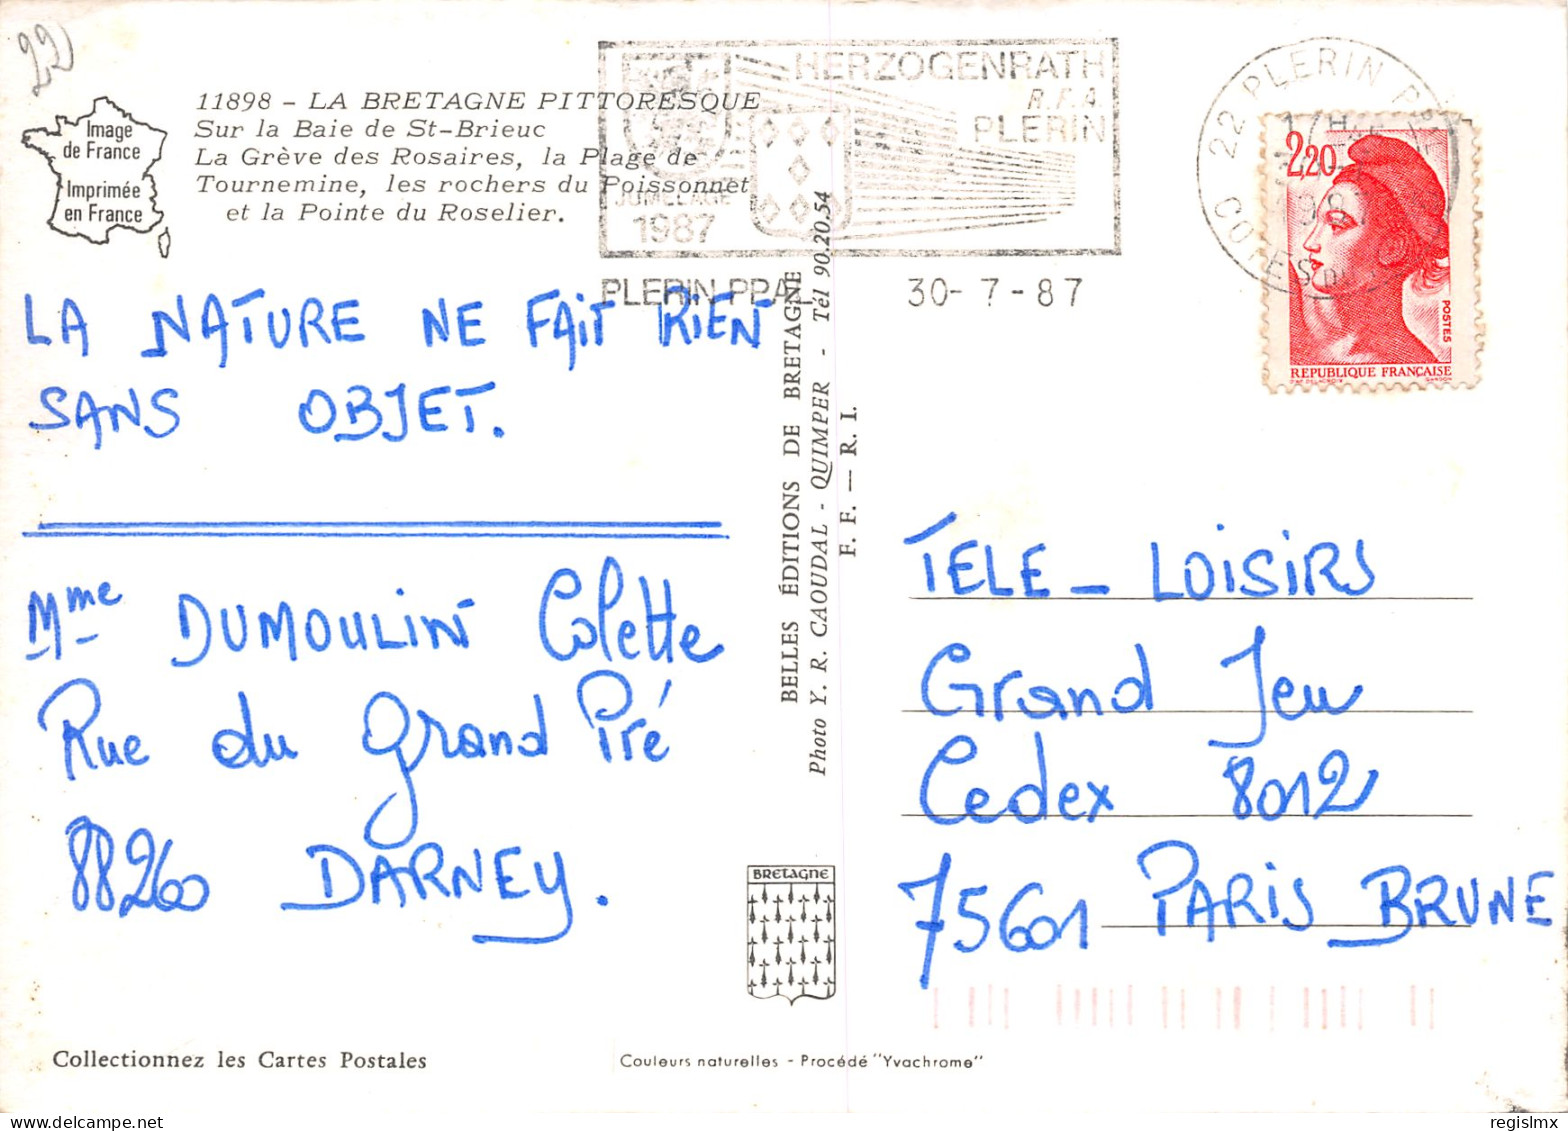 22
Image
de France
Imprimée
en France
11898 - LA BRETAGNE PITTORESQUE
Sur la Baie de St-Brieuc
La Grève des Rosaires, la Plage de
Tournemine, les rochers du Poissonnet
et la Pointe du Roselier.
HERZOGENRATH
R.F.A.
PLERIN
JUMELAGE
1987
PLERIN PPAL 30-7-87
22 PLERIN
2,20
POSTES
REPUBLIQUE FRANÇAISE
LA NATURE NE FAIT RIEN
SANS OBJET.
Mme DUMOULIN Colette
Rue du Grand Pré
88260 DARNEY.
BELLES ÉDITIONS DE BRETAGNE
Photo Y. R. CAOUDAL - QUIMPER - Tél 90.20.54
F. F. — R. I.
TELE - LOISIRS
Grand Jeu
Cedex 8012
75601 PARIS BRUNE
BRETAGNE
Collectionnez les Cartes Postales
Couleurs naturelles - Procédé "Yvachrome"
regislmx